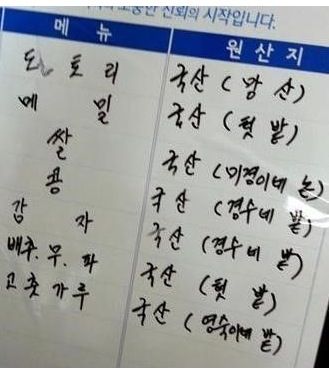 소중한 신뢰의 시작입니다.
메뉴 원산지
도토리 국산 (강 산)
메밀 국산 (텃 밭)
쌀 국산 (미경이네 논)
콩 국산 (경수네 밭)
감자 국산 (경수네 밭)
배추. 무. 파 국산 (텃 밭)
고춧가루 국산 (영숙이네 밭)